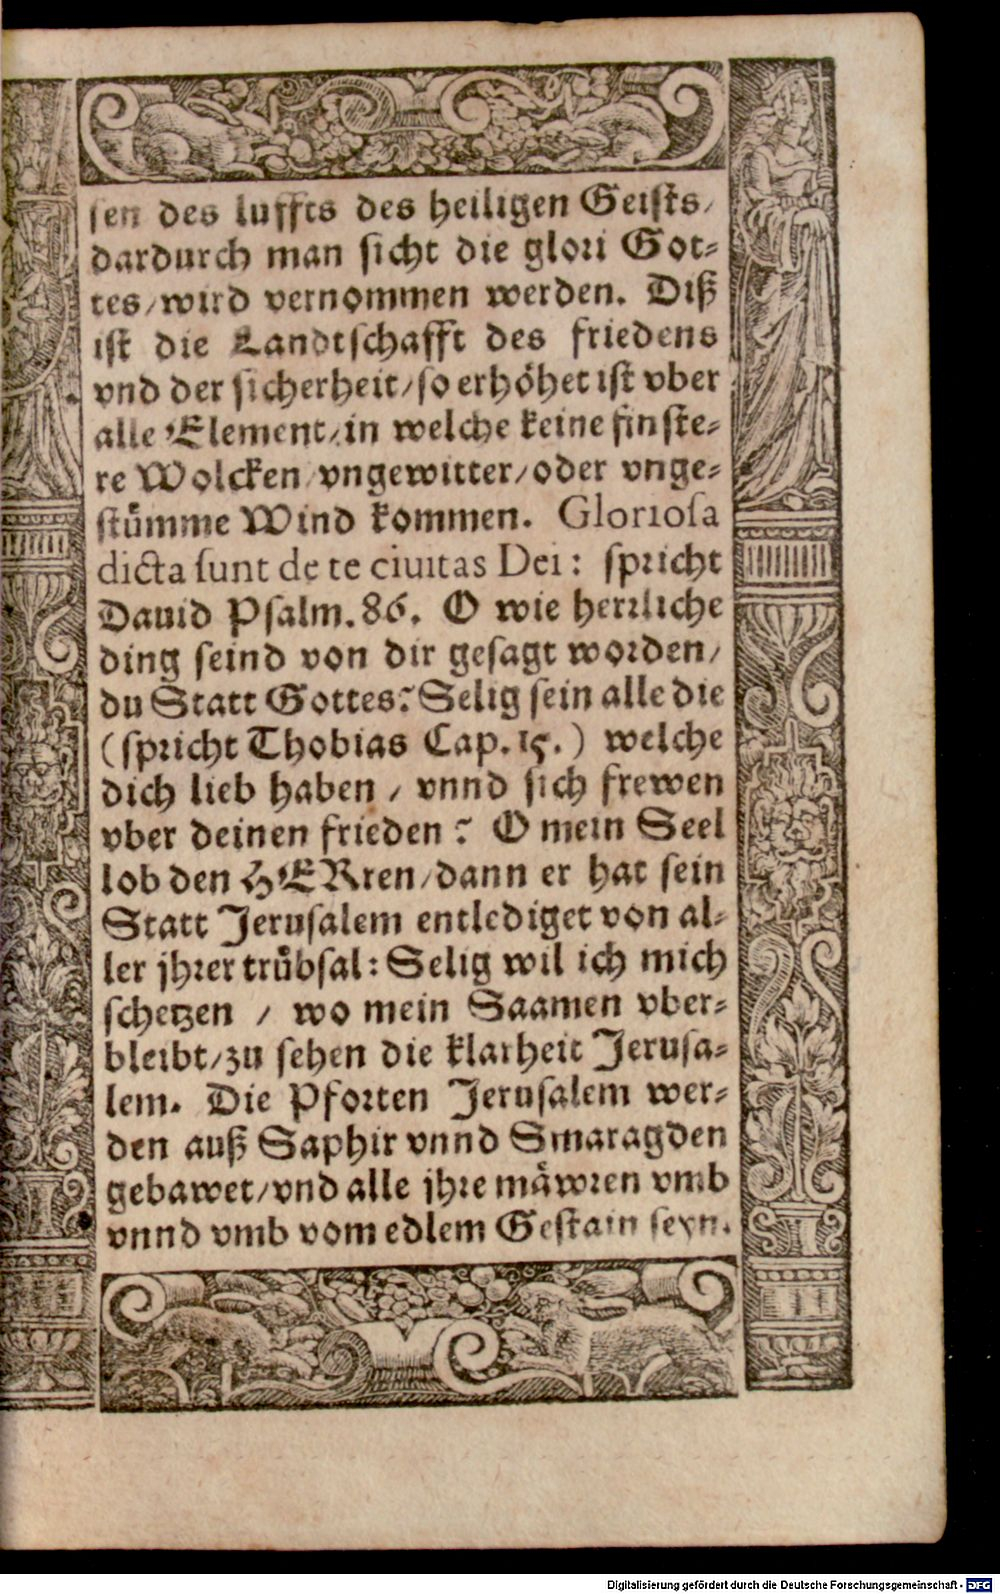 sen des luffts des heiligen Geists/
dardurch man sicht die glori Got⸗
tes/wird vernommen werden. Diß
ist die Landtschafft des friedens
vnd der sicherheit/so erhöhet ist vber
alle Element/in welche keine finste⸗
re Wolcken/vngewitter/oder vnge⸗
stům̃me Wind kommen. Gloriosa
dicta sunt de te ciuitas Dei: spricht
Dauid Psalm.86. O wie herrliche
ding seind von dir gesagt worden/
du Statt Gottes? Selig sein alle die
(spricht Thobias Cap.15.) welche
dich lieb haben / vnnd sich frewen
vber deinen frieden? O mein Seel
lob den HERren/dann er hat sein
Statt Jerusalem entlediget von al⸗
ler jhrer trůbsal: Selig wil ich mich
schetzen / wo mein Saamen vber⸗
bleibt/zu sehen die klarheit Jerusa⸗
lem. Die Pforten Jerusalem wer⸗
den auß Saphir vnnd Smaragden
gebawet/vnd alle jhre mäwren vmb
vnnd vmb vom edlem Gestain seyn.
Digitalisierung gefördert durch die Deutsche Forschungsgemeinschaft - DFG